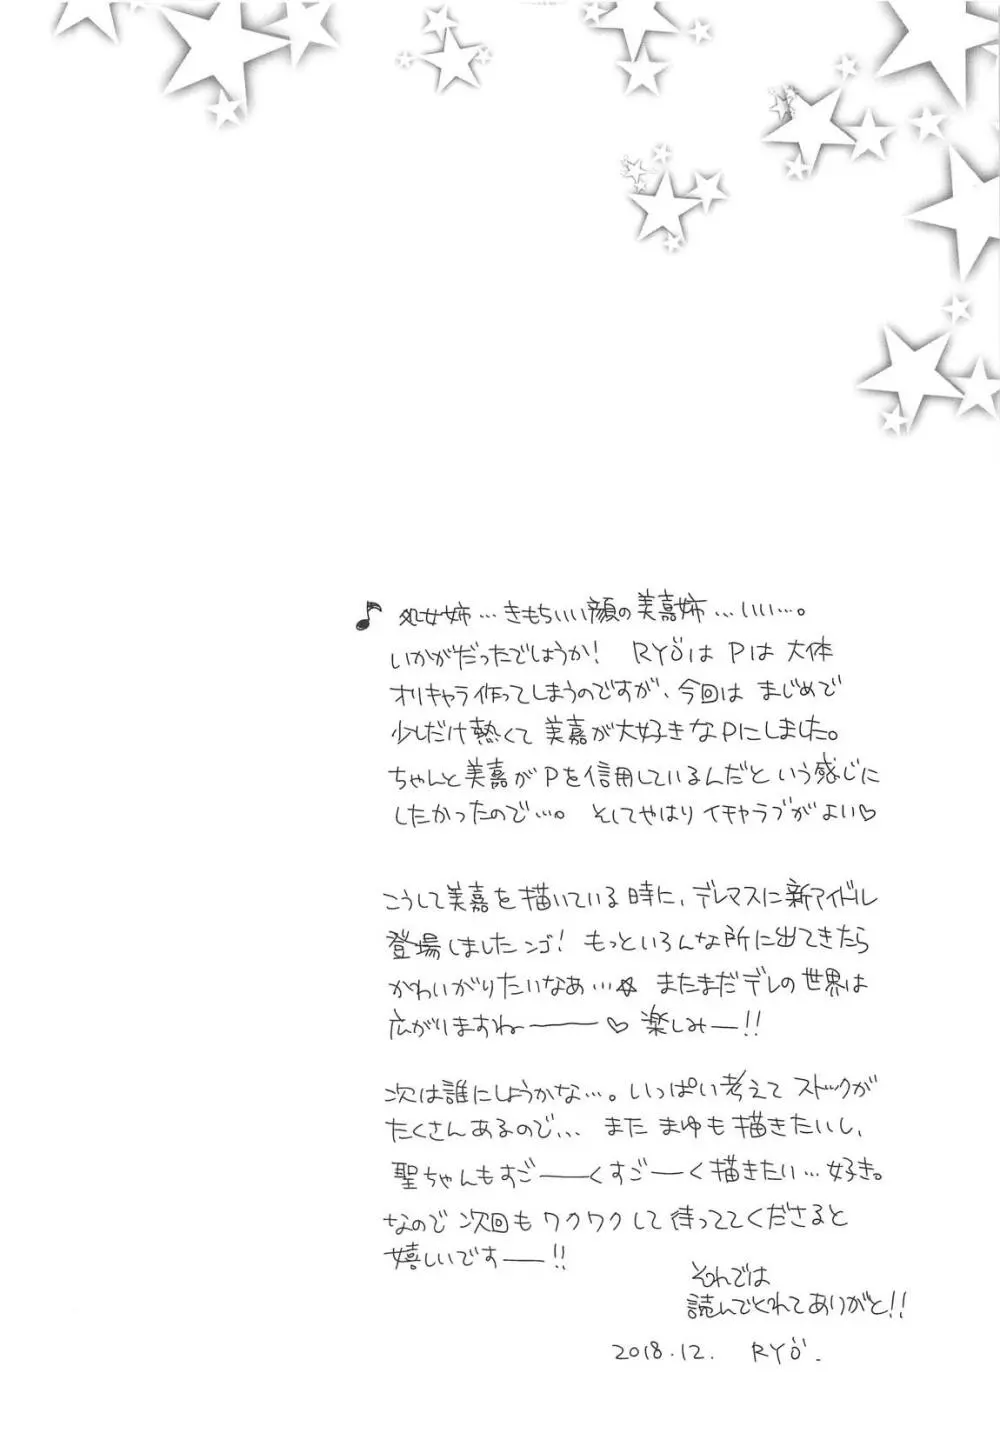 ♪処女姉…きもちいい顔の美嘉姉…いい…。
いかがだったでしょうか! RYÖはPは大体
オリキャラ作ってしまうのですが、今回はまじめで
少しだけ熱くて美嘉が大好きなPにしました。
ちゃんと美嘉がPを信用しているんだという感じに
したかったので…。そしてやはりイチャラブがよい♡
こうして美嘉を描いている時に、デレマスに新アイドル
登場しましたンゴ! もっといろんな所に出てきたら
かわいがりたいなあ…☆ まだまだデレの世界は
広がりますねーー♡ 楽しみー!!
次は誰にしようかな…。いっぱい考えてストックが
たくさんあるので… また まゆも描きたいし、
聖ちゃんもすごーーくすごーく描きたい…好き。
なので次回もワクワクして待っててくださると
嬉しいですーー!!
それでは
読んでくれてありがと!!
2018.12. RYÖ.